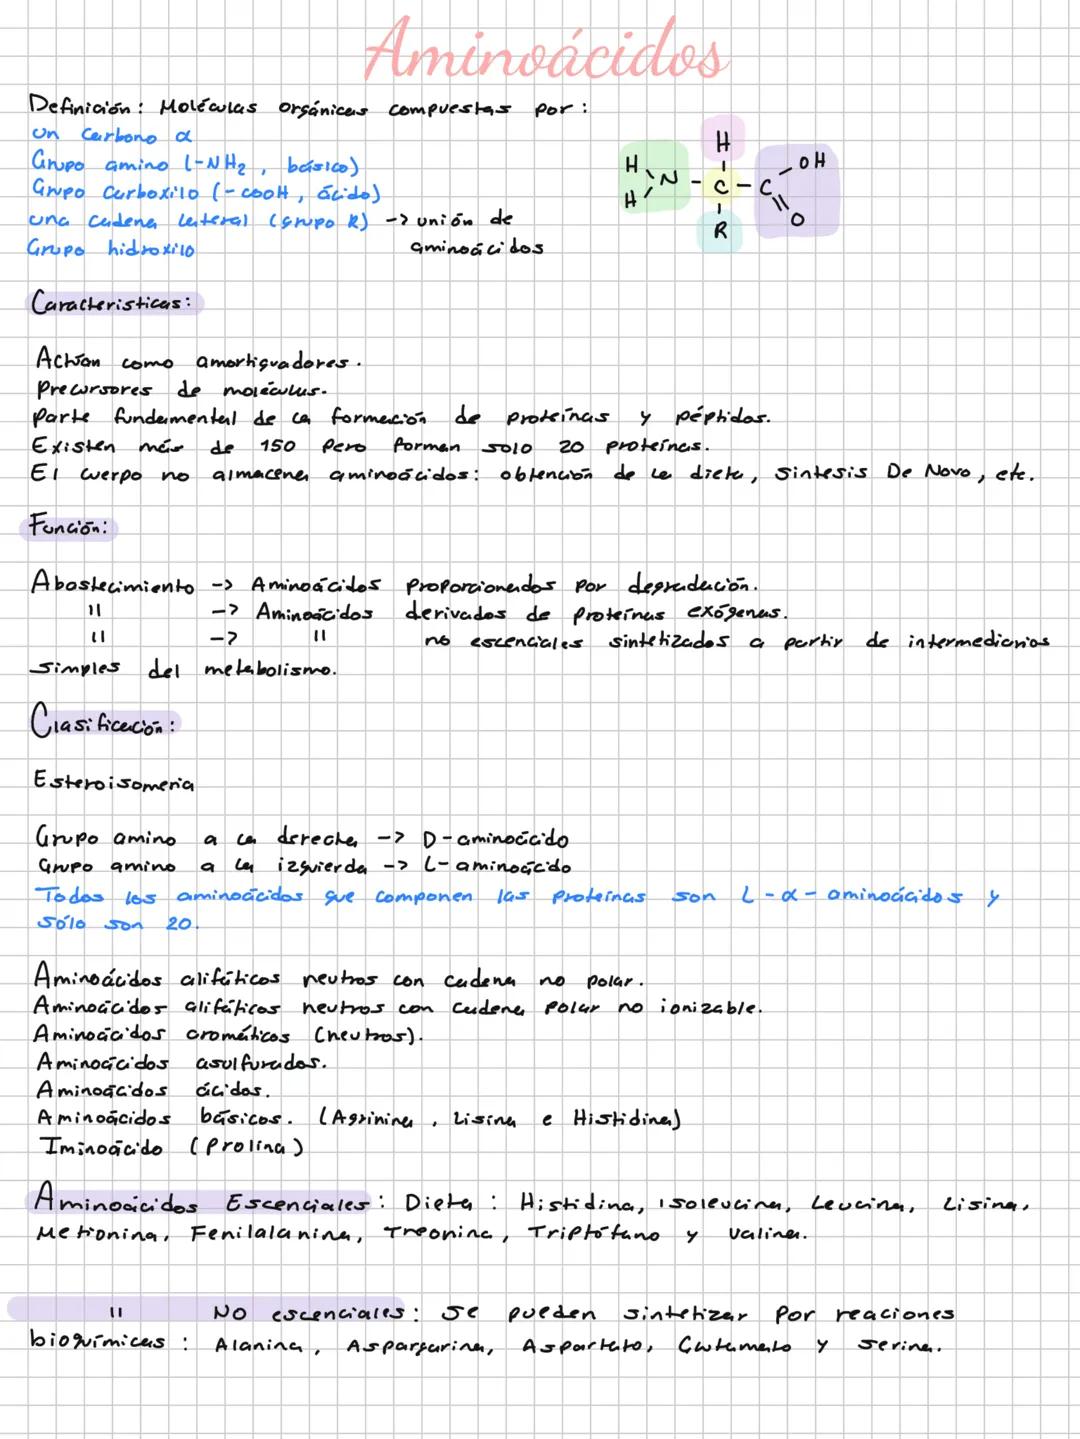 Aminoácidos
Definición: Moléculas orgánicas compuestas por:
un Carbono α
Grupo amino (-NH2, básico)
Grupo Carboxilo (-COOH, ácido)
una cadena lateral (grupo R) -> unión de
aminoácidos
Grupo hidroxilo
H
H
N - C - C
H
R
OH
O
Caracteristicas:
Actúan como amortiguadores.
Precursores de moléculas.
Parte fundamental de la formación de proteínas y péptidos.
Existen más de 150 pero forman solo 20 proteínas.
El cuerpo no almacena aminoácidos: obtención de la dieta, sintesis De Novo, etc.
Función:
Abastecimiento -> Aminoácidos proporcionados por degradación.
" -> Aminoácidos derivados de proteínas exógenas.
" -> " no escenciales sintetizados a partir de intermediarios
simples del metabolismo.
Clasificación:
Esteroisomeria
Grupo amino a la derecha -> D-aminoácido
Grupo amino a la izquierda -> L-aminoácido
Todos los aminoácidos que componen las proteínas son L-α-aminoácidos y
sólo son 20.
Aminoácidos alifáticos neutros con cadena no polar.
Aminoácidos alifáticos neutros con cadena polar no ionizable.
Aminoácidos aromáticos (neutros).
Aminoácidos asulfurados.
Aminoácidos ácidos.
Aminoácidos básicos. (Agrinina, Lisina e Histidina)
Iminoácido (Prolina)
Aminoácidos Escenciales: Dieta: Histidina, isoleucina, Leucina, Lisina,
Metionina, Fenilalanina, Treonina, Triptófano y valina.
" No escenciales: Se pueden sintetizar por reaciones
bioquímicas: Alanina, Aspargarina, Aspartato, Glutamato y serina.